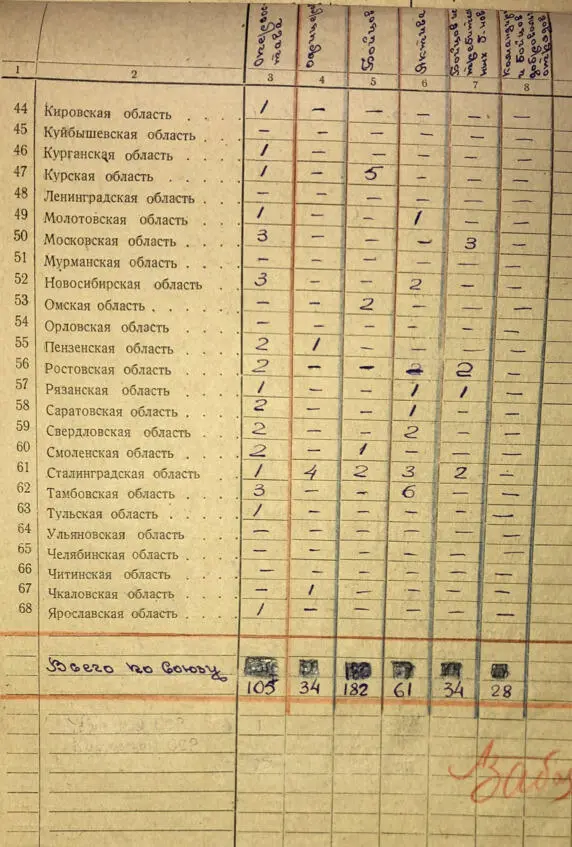 Оперсос-
тава
Офицер
Бойцов
Актива
Бойцов ис-
требитель-
ных б-нов
Командир
и бойцов
отрядов
1 2 3 4 5 6 7 8
44 Кировская область . . . . 1 — — — — —
45 Куйбышевская область . . . . — — — — — —
46 Курганская область . . . . 1 — — — — —
47 Курская область . . . . 1 — 5 — — —
48 Ленинградская область . . . . — — — — — —
49 Молотовская область . . . . 1 — — 1 — —
50 Московская область . . . . 3 — — — 3 —
51 Мурманская область . . . . — — — — — —
52 Новосибирская область . . . 3 — — 2 — —
53 Омская область . . . . . — — 2 — — —
54 Орловская область . . . . — — — — — —
55 Пензенская область . . . . 2 1 — — — —
56 Ростовская область . . . . 2 — — 2 —
57 Рязанская область . . . . 1 — — 1 1 —
58 Саратовская область . . . . 2 — — 1 — —
59 Свердловская область . . . . 2 — — 2 — —
60 Смоленская область . . . . 2 — 1 — — —
61 Сталинградская область . . . 1 4 2 3 2 —
62 Тамбовская область . . . . 3 — — 6 — —
63 Тульская область . . . . 1 — — — — —
64 Ульяновская область . . . . — — — — — —
65 Челябинская область . . . . — — — — — —
66 Читинская область . . . . — — — — — —
67 Чкаловская область . . . . — 1 — — — —
68 Ярославская область . . . . 1 — — — — —
Всего по Союзу
105 34 182 61 34 28